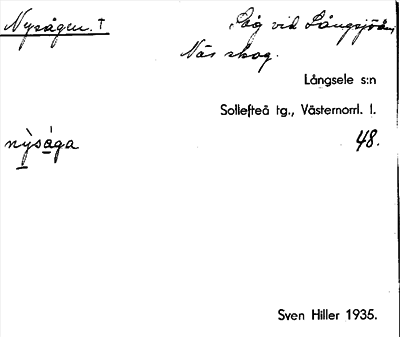 Nysågen. †
Såg vid Långsjön,
Näs skog.
Långsele s:n
Sollefteå tg., Västernorrl. l.
nỳsåga
48.
Sven Hiller 1935.